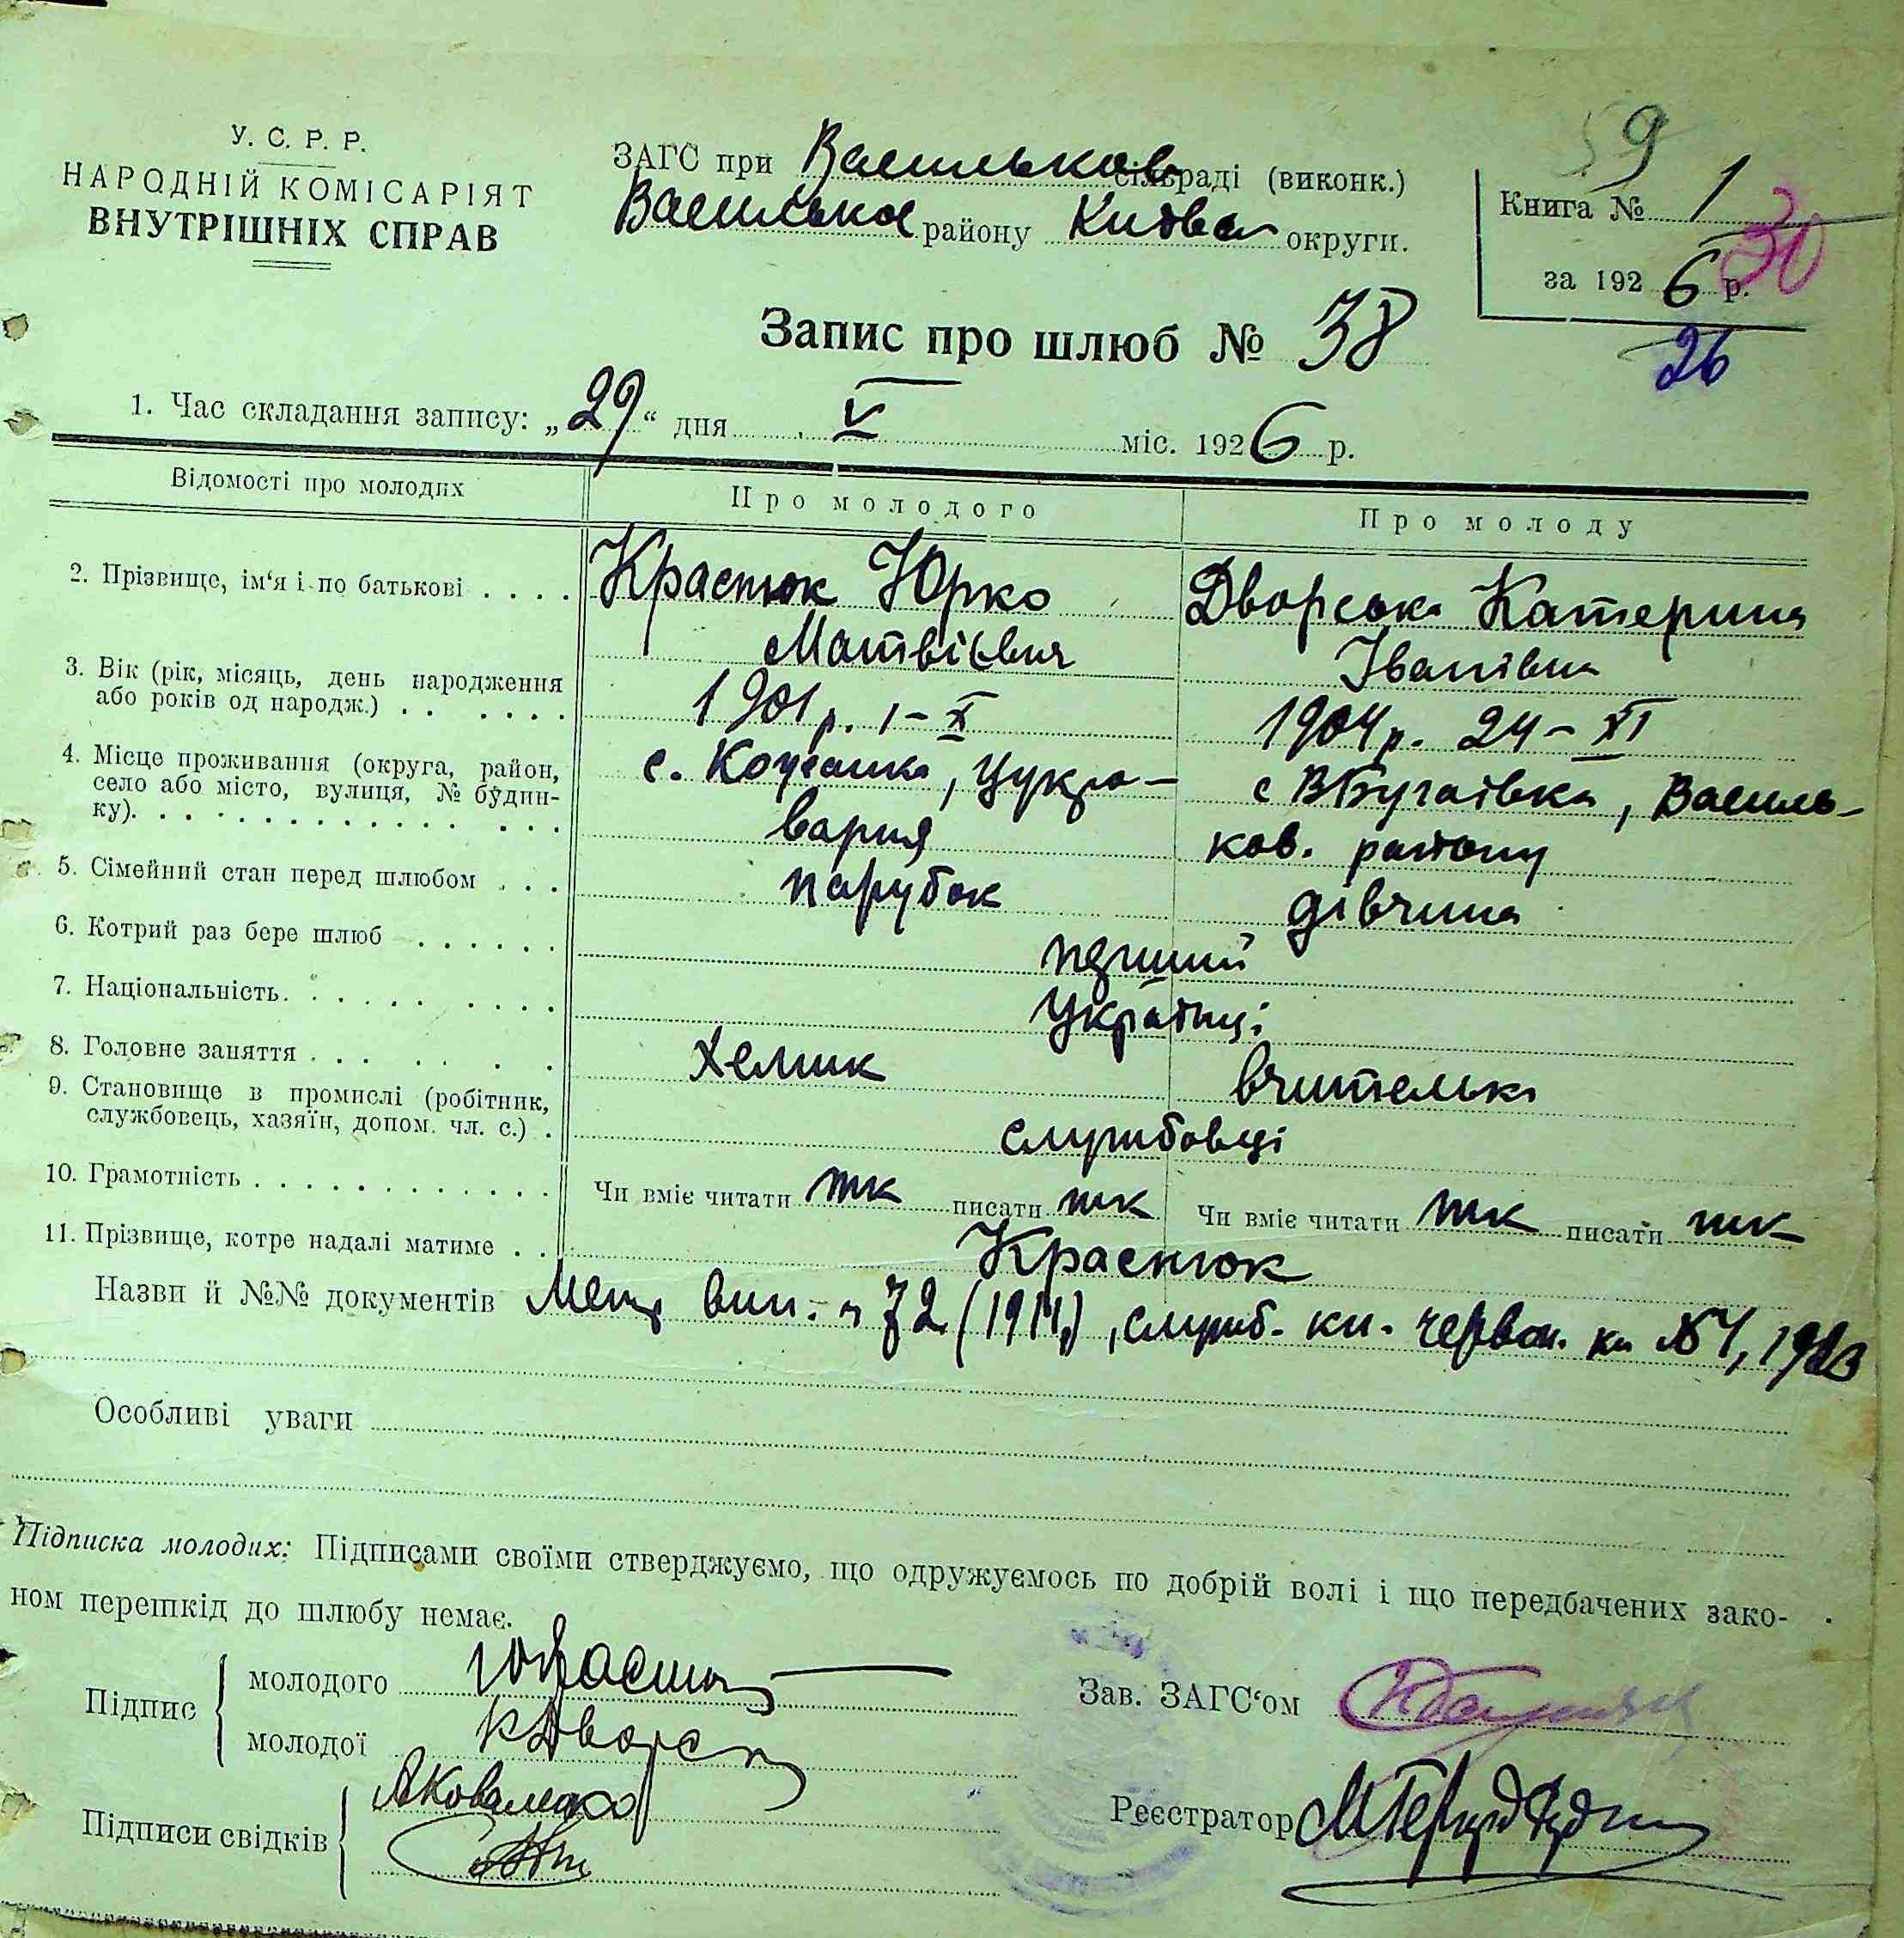 59
У. С. Р. Р.
НАРОДНІЙ КОМІСАРІЯТ
ВНУТРІШНІХ СПРАВ
ЗАГС при Васильков сільраді (виконк.)
Васильков району Київськ округи.
Книга № 1
30
за 1926 р.
26
Запис про шлюб № 38
1. Час складання запису: „29“ дня V міс. 1926 р.
Відомості про молодих
Про молодого
Про молоду
2. Прізвище, ім‘я і по батькові . . . . Краснюк Юрко Дворська Катерина
Матвієвич Іванівна
3. Вік (рік, місяць, день народження
або років од народж.) . . . . . . 1901 р. 1–X 1904 р. 24–XI
4. Місце проживання (округа, район,
село або місто, вулиця, № будин-
ку). с. Кожанка, Цукро- с ВБугаївка, Василь-
варня ков. району
5. Сімейний стан перед шлюбом . . . парубок дівчина
6. Котрий раз бере шлюб . . . . . . перший
7. Національність. Українці
8. Головне заняття . . . Хемик вчителька
9. Становище в промислі (робітник,
службовець, хазяїн, допом. чл. с.) . службовці
10. Грамотність . . . Чи вміє читати так писати так Чи вміє читати так писати так
11. Прізвище, котре надалі матиме . . Краснюк
Назви й №№ документів вип. 72 (1911), служб. кн. червон. №
Особливі уваги
Підписка молодих: Підписами своїми стверджуємо, що одружуємось по добрій волі і що передбачених зако-
ном перешкід до шлюбу немає.
Підпис
молодого ЮКрасню
молодої КДворськ
Підписи свідків
АКоваленко
Зав. ЗАГС‘ом
Реєстратор